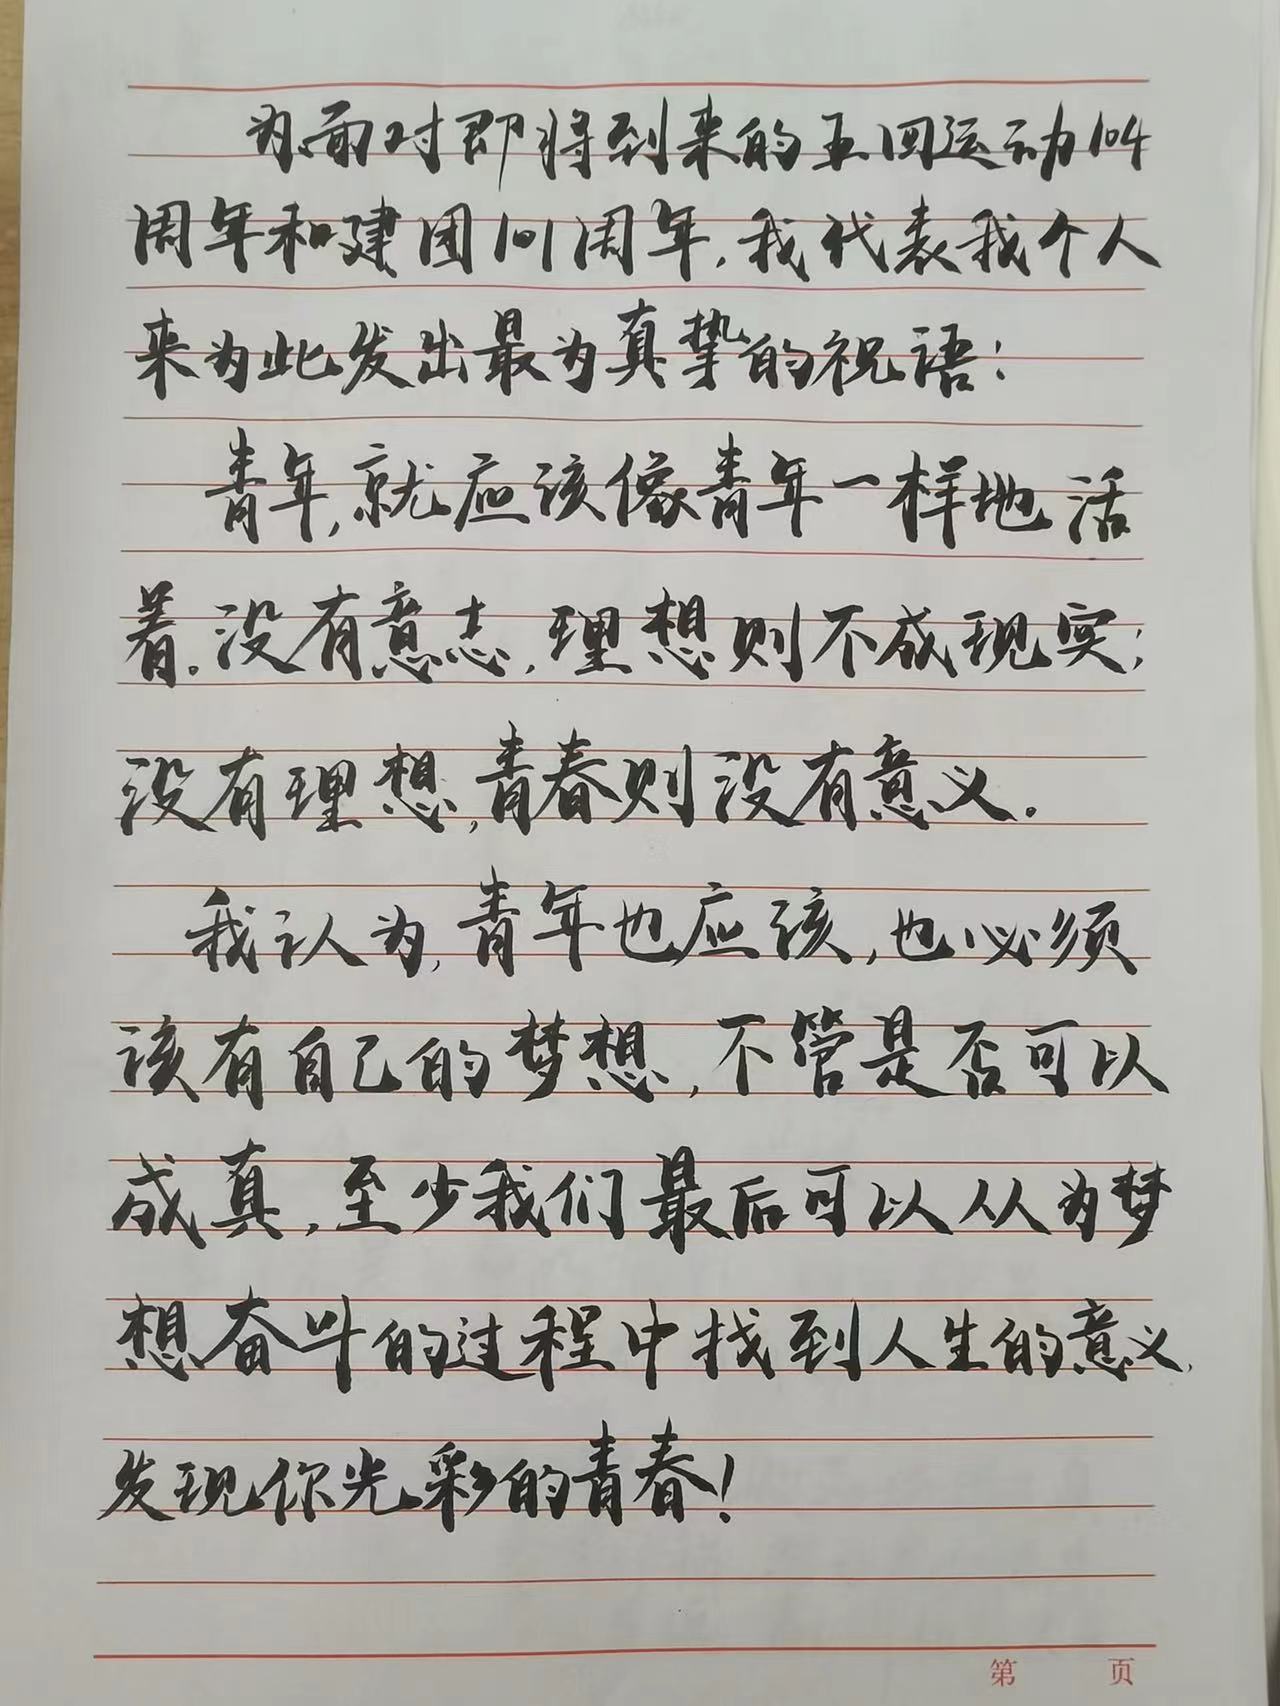 为面对即将到来的五四运动104
周年和建团101周年，我代表我个人
来为此发出最为真挚的祝语：
青年，就应该像青年一样地活
着。没有意志，理想则不成现实；
没有理想，青春则没有意义。
我认为，青年也应该，也必须
该有自己的梦想，不管是否可以
成真，至少我们最后可以从为梦
想奋斗的过程中找到人生的意义，
发现你光彩的青春！
第 页